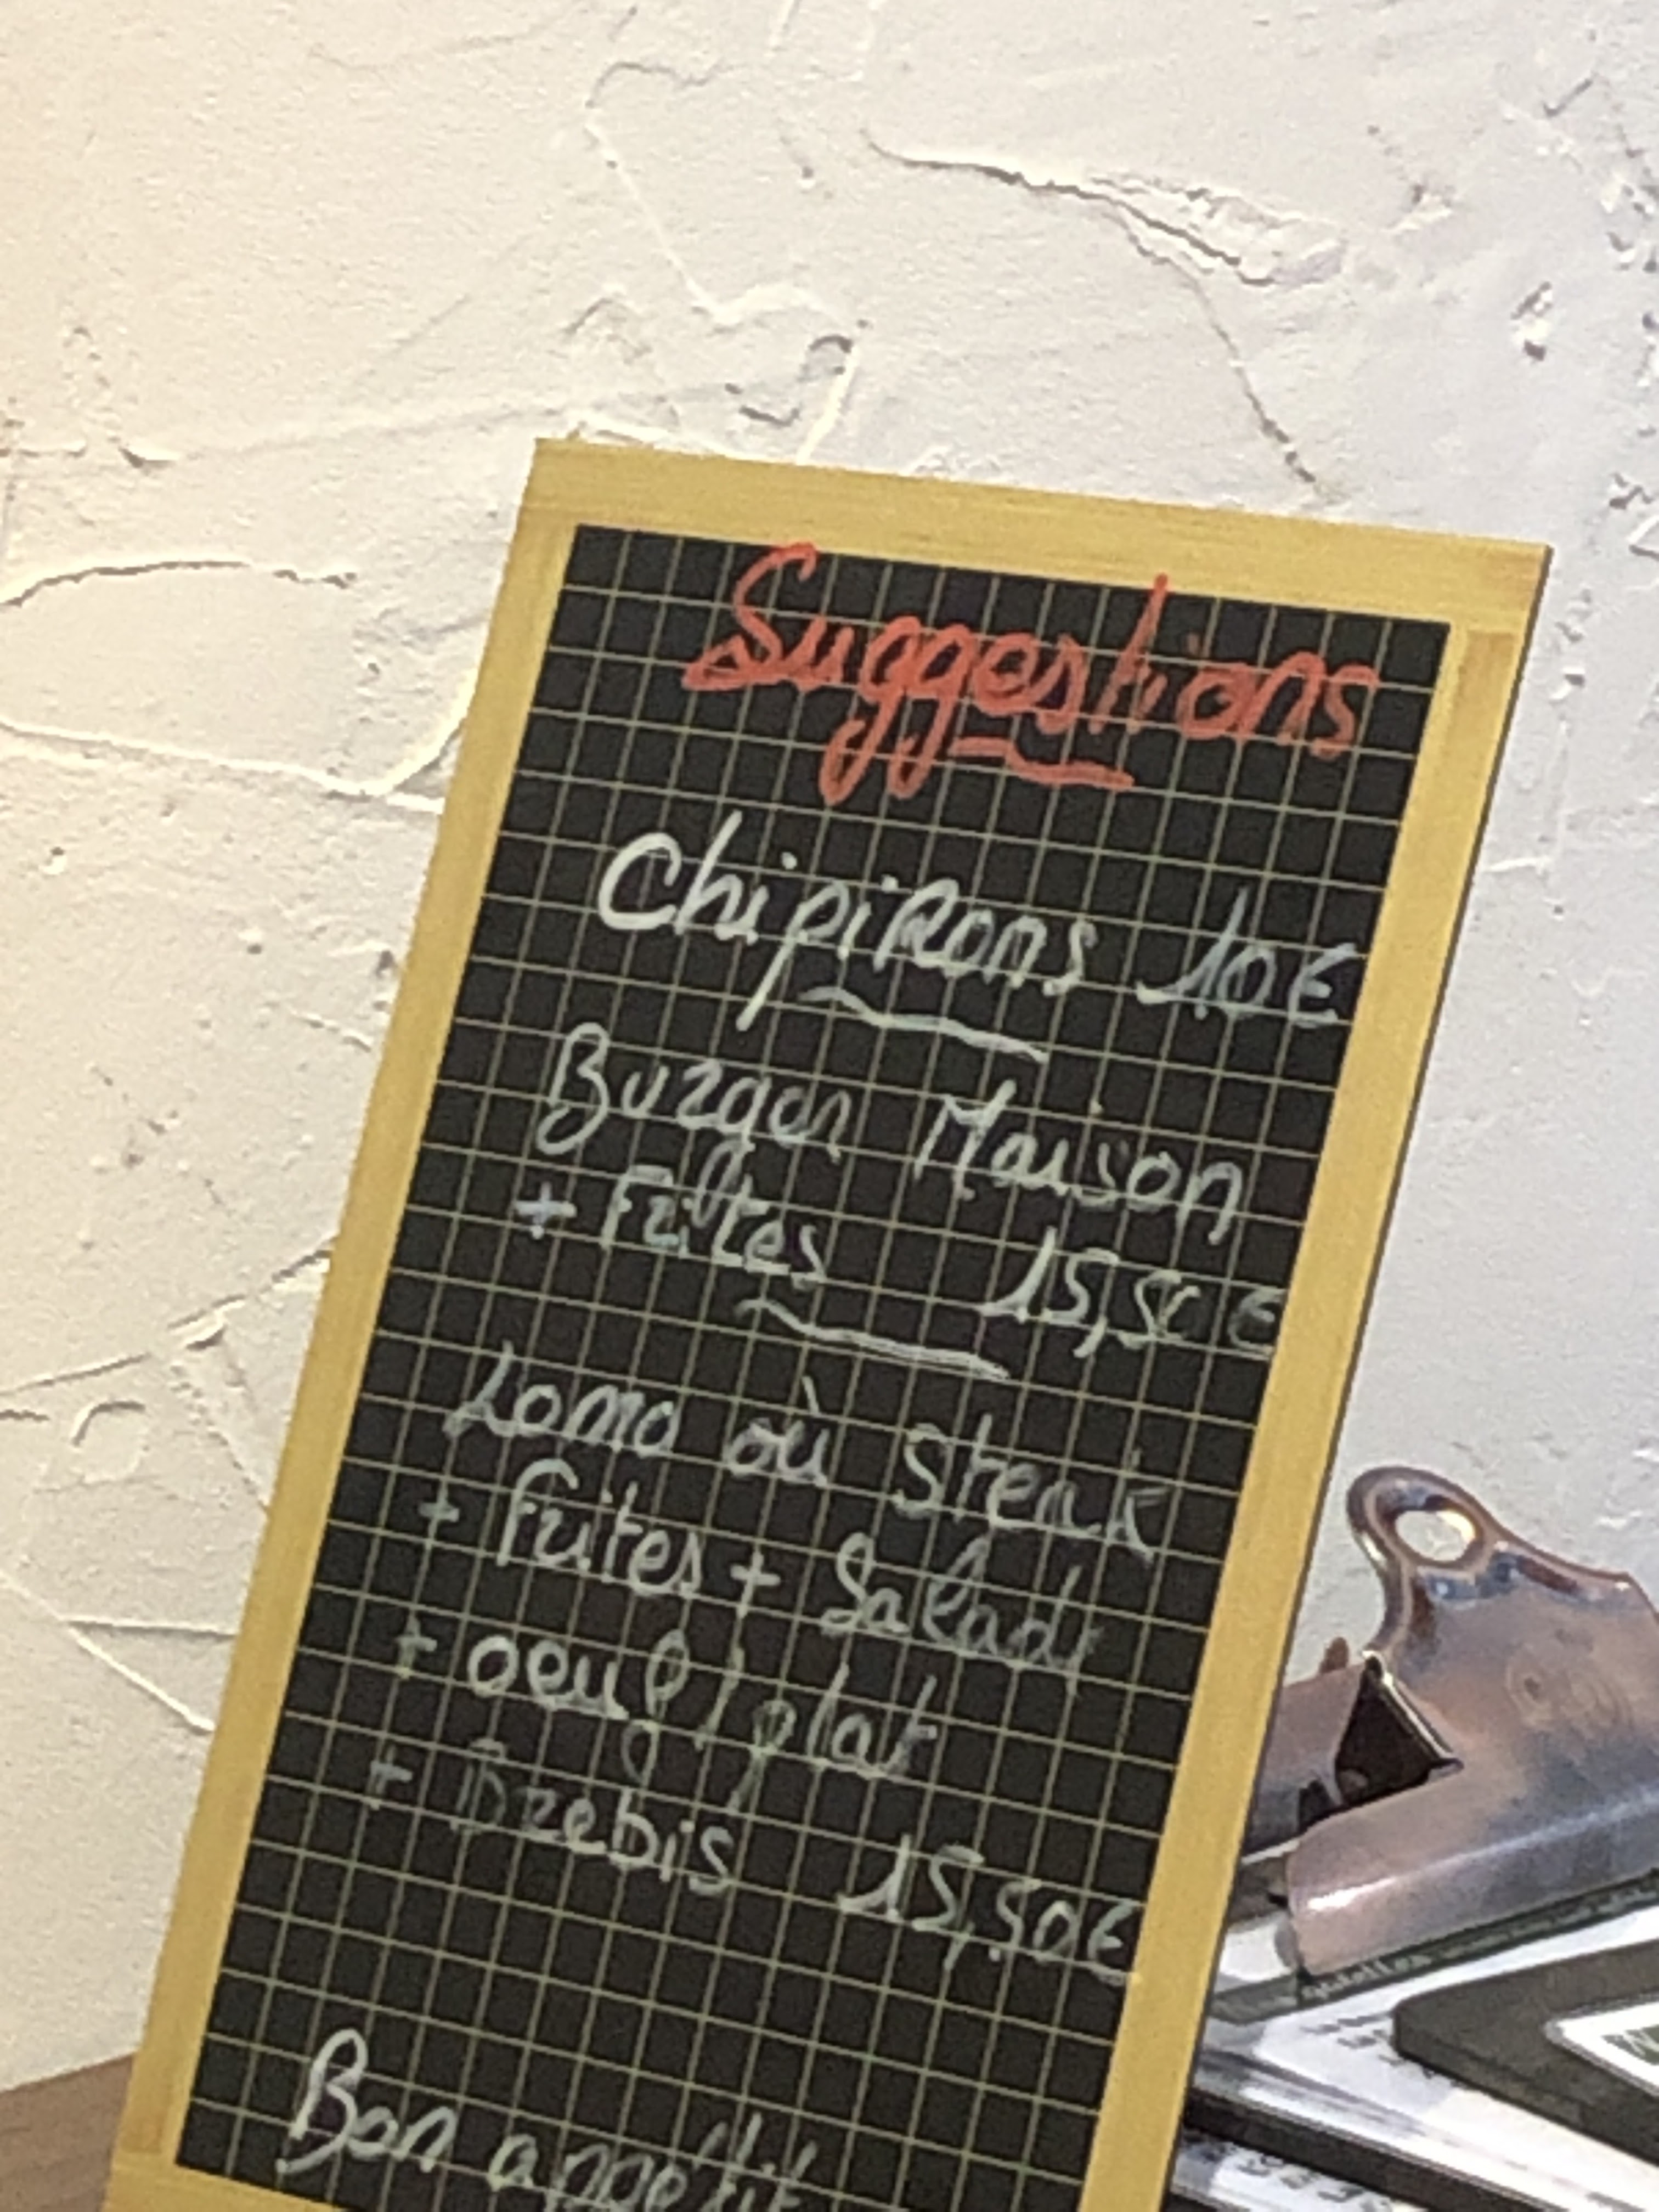 Suggestions
Chipirons 10€
Burger Maison
+ Frites 15,50€
Lomo où Steak
+ Frites + Salade
+ oeuf plat
+ Brebis 15,50€
Bon appétit